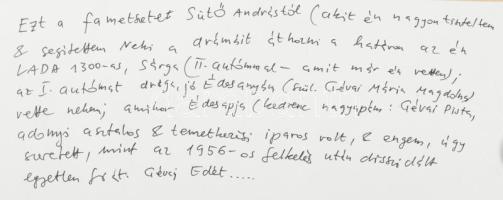 Ezt a fametszetet Sütő Andrástól (akit én nagyon tiszteltem
& segitettem Neki a drámáit áthozni a határon az én
LADA 1300-as, Sárga (II. autómmal - amit már én vettem);
az I. autómat drága, jó Édesanyám (szül. Gévai Mária Magdolna)
vette nekem; amikor Édesapja (kedvenc nagyapám: Gévai Pista,
adonyi asztalos & temetkezési iparos volt, & engem, úgy
szeretett, mint az 1956-os felkelés után disszidált
egyetlen fiát. Gévai Edét.....